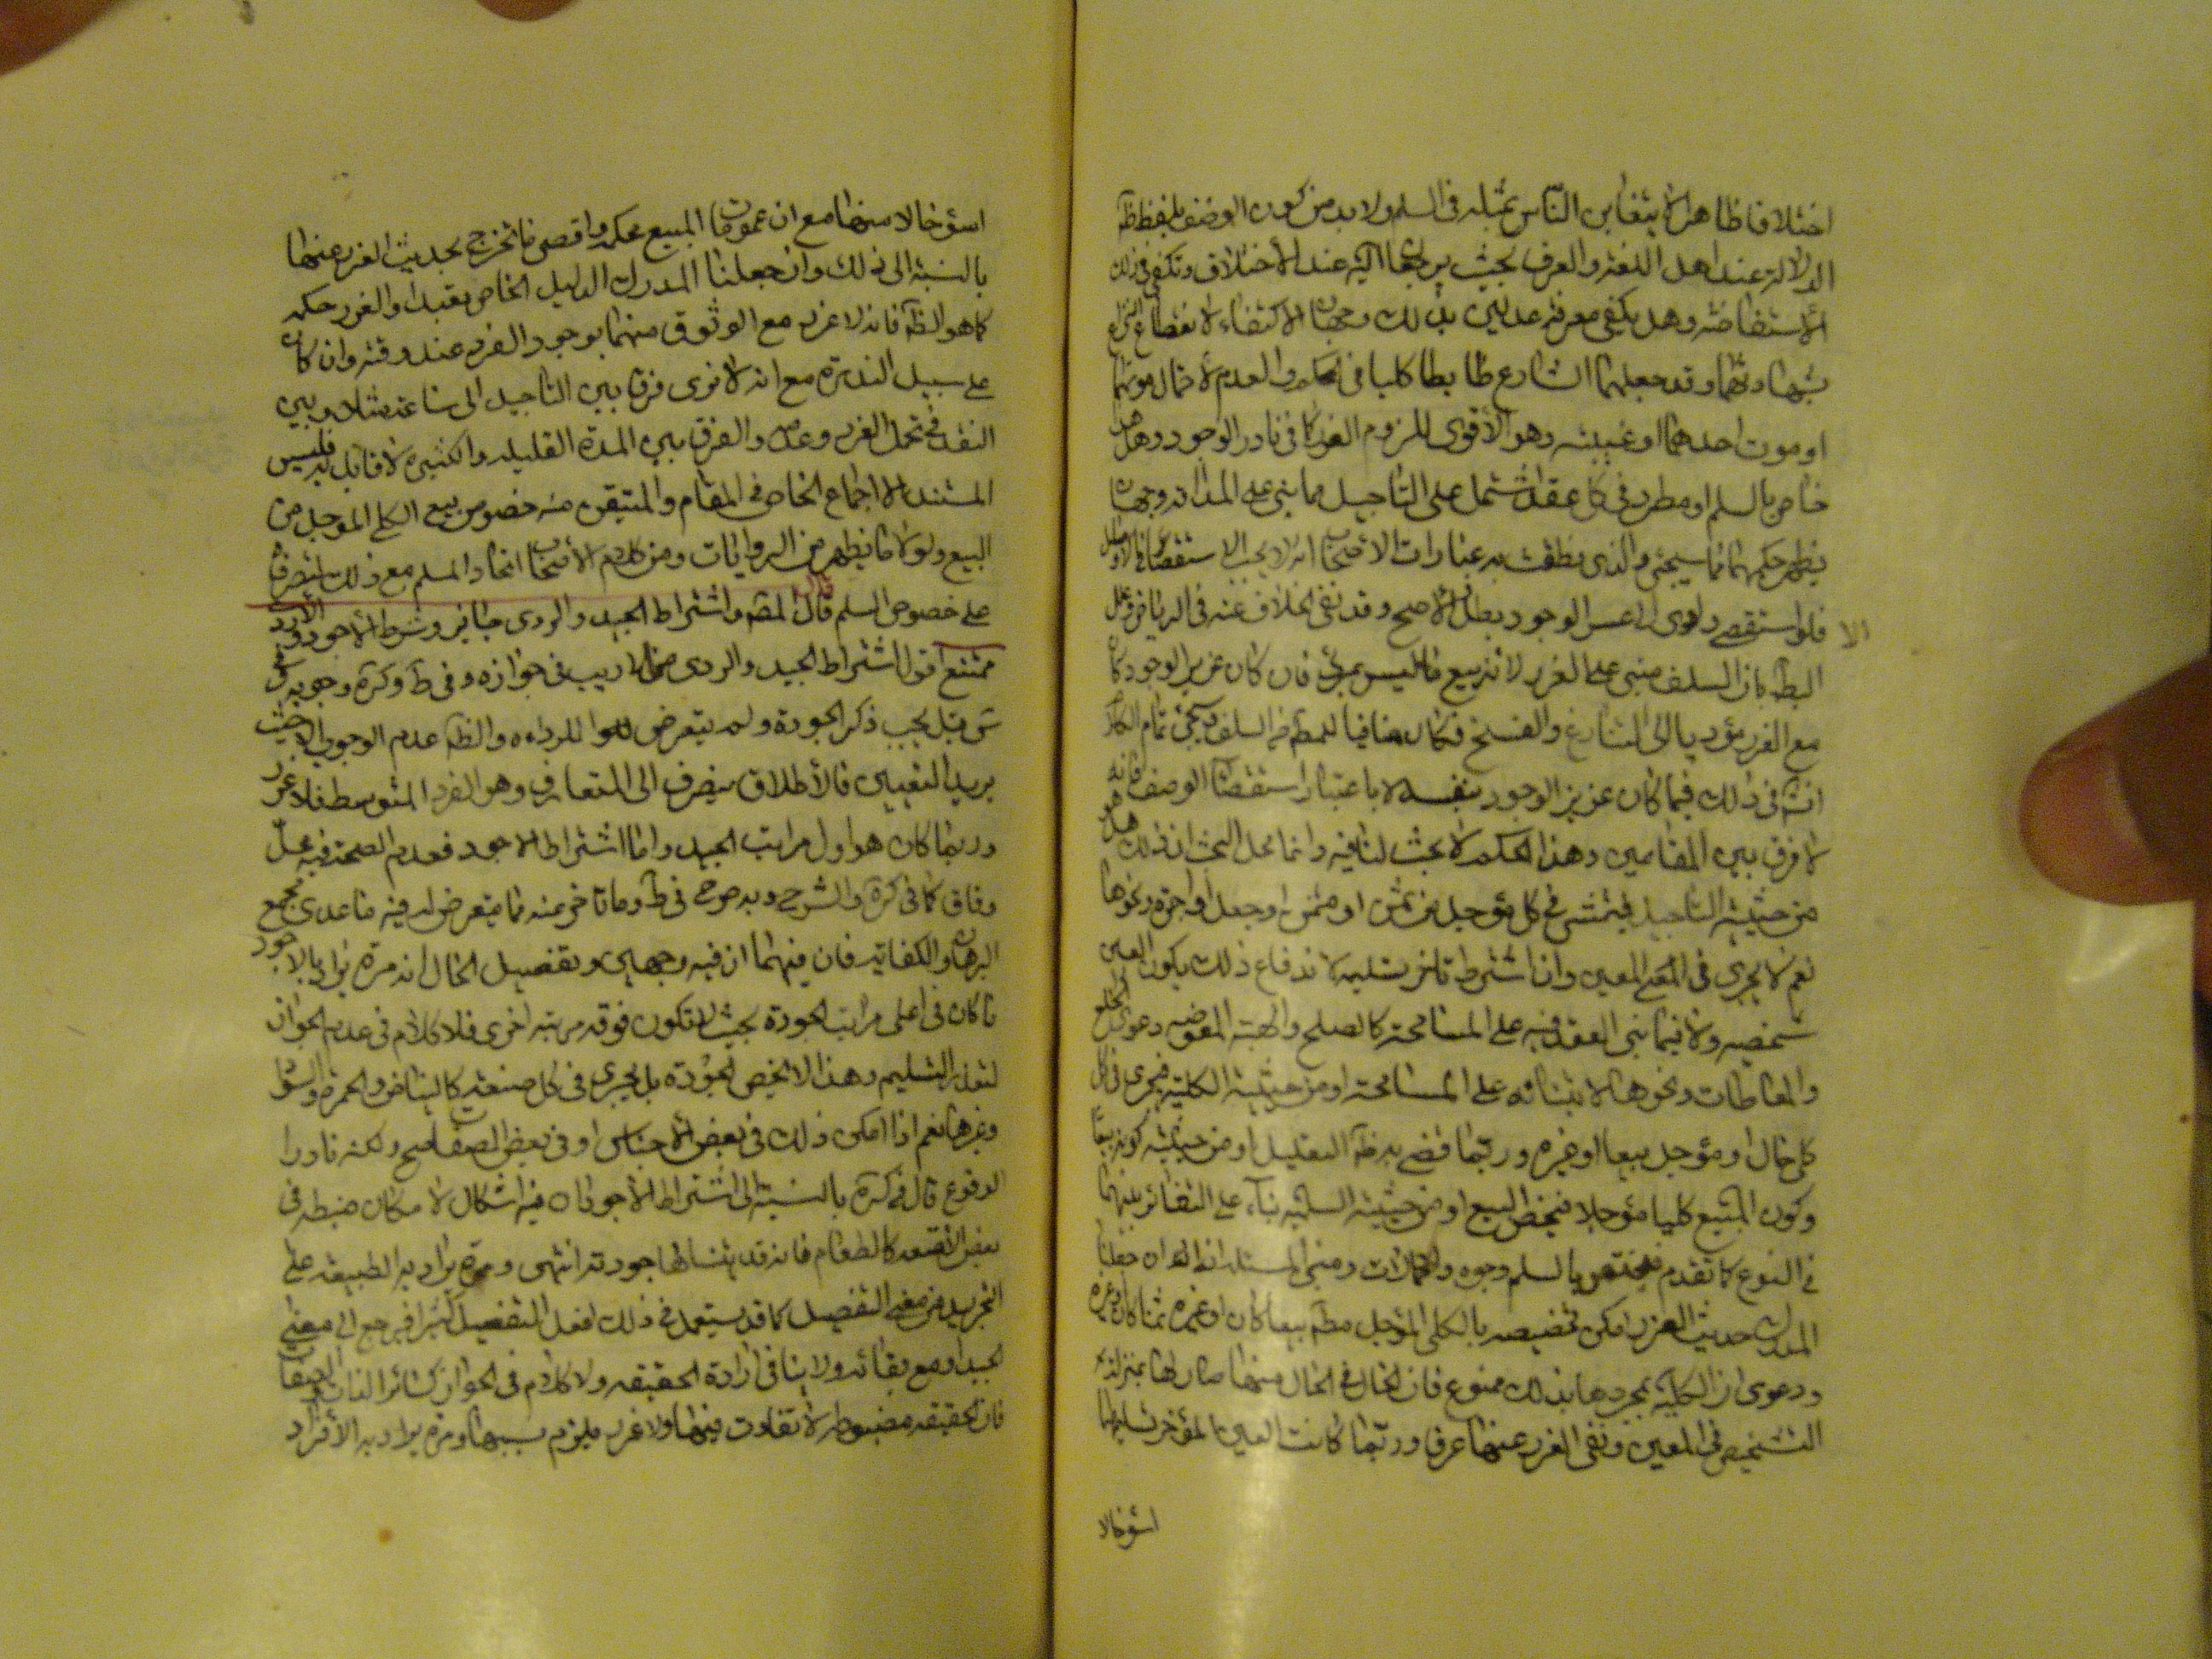 اختلافا ظاهرا لا يتغابن الناس بمثله في السلم ولا بد من كون الوصف بلفظ ظه
الدلالة عند اهل اللغة والعرف بحيث يرجعا اليه عند الاختلاف وتكفي في ذلك
الاستفاضة وهل يكفي معرفة عدلين بذلك وجهان الاكتفاء لانقطاع النزاع
بشهادتهما وقد جعلهما الشارع ضابطا كليا في الحكم والعدم لاحتمال موتهما
او موت احدهما او غيبته وهو الأقوى للزوم الغرر كما في نادر الوجود وهل هذا
خاص بالسلم او مطرد في كل عقد اشتمل على التأجيل مما بني على المداقه وجهان
يظهر حكمهما مما سيجئ والذي نطقت به عبارات الاصحاب انه لا يجب الاستقصاء في الاوصاف
فلو استقصى وادى الى عسر الوجود بطل الاصح وقد نفى الخلاف عنه في الرياض وعلل
الا
البطه بان السلف مبني على الغرر لانه بيع ما ليس بمرئي فان كان عزيز الوجود كان
مع الغرر مؤديا الى التنازع والفسخ فكان منافيا للمطه من السلف وسيجئ تمام الكلام
انشه في ذلك فيما كان عزيز الوجود بنفسه لا باعتبار استقصاء الوصف فانه
لا فرق بين المقامين وهذا الحكم لا بحث لنا فيه وانما محل البحث ان ذلك هل هو
من حيثية التأجيل فيتمشى في كل مؤجل من ثمن او مثمن او جعل او اجرة ونحوها
نعم لا يجري في المبيع المعين وان اشترط تأخر تسليمه لاندفاع ذلك بكون العين
شخصيه ولا فيما بني العقد فيه على المسامحة كالصلح والهبة المعوضه وعوض الخلع
والمعاطات ونحوها لابتنائه على المسامحة او من حيثية الكلية فيجري في كل
كلي حال او مؤجل بيعا او غيره وربما قضى به ظه التعليل او من حيثية كونه بيعا
وكون المبيع كليا مؤجلا فيخص البيع او من حيثية السلميه بناء على التغائر بينهما
في النوع كما تقدم فيختص بالسلم وجوه واحتمالات ومبنى المسئله انه ان جعلنا
المدرك حديث الغرر امكن تخصيصه بالكلي المؤجل مطه بيعا كان او غيره ثمنا كان او غيره
ودعوى ان الكلية بمجردها بذلك ممنوع فان الحال في الحال منها صار لها بمنزلة
التشخيص في المعين ونفى الغرر عنها عرفا وربما كانت العين المؤخر تسليمها
اسؤ حالا
اسؤ حالا منها مع ان عمومات المبيع محكمه واقصى ما تخرج بحديث الغرر عنها
بالنسبة الى ذلك وان جعلنا المدرك الدليل الخاص تعبدا والغرر حكمه
كما هو الظه فانه لا غرر مع الوثوق منهما بوجود الفرد عند وقته وان كان
على سبيل الندرة مع انه لا نرى فرقا بين التأجيل الى ساعة مثلا وبين
النقد في تحمل الغرر وعدمه والفرق بين المدة القليلة والكثيرة لا قابل به فليس
المستند الا الاجماع الخاص في المقام والمتيقن منه خصوص بيع الكلي المؤجل من
البيع ولولا ما يظهر من الروايات ومن كلام الأصحاب اتحاد السلم مع ذلك
على خصوص السلم قال المصه واشتراط الجيد والردي جايز وشرط الأجود والأردى
ممتنع اقول اشتراط الجيد والردي مما لا ريب في جوازه وفي ط وكرة وجوبه
بل قيل يجب ذكر الجودة ولم يتعرض للرداءه والظه عدم الوجوب الا حيث
يريد التعيين فالأطلاق ينصرف الى المتعارف وهو الفرد المتوسط فلا غرر
وربما كان هو اول مراتب الجيد واما اشتراط الاجود فعدم الصحة فيه محل
وفاق كما في كرة والشرح وبه صرح في ط وما تاخر عنه مما يتعرض له فيه ما عدى مجمع
البرهان والكفاية فان فيهما ان فيه وجهين وتفصيل الحال انه مرة يراد بالاجود
ما كان في اعلى مراتب الجودة بحيث لا تكون فوقه مرتبه اخرى فلا كلام في عدم الجواز
لتعذر التسليم وهذا لا يخص الجودة بل يجري في كل صفة كالبياض والحمرة والسواد
وغيرها نعم اذا امكن ذلك في بعض الأجناس او في بعض الصفات صح ولكنه نادر
الوقوع قال في كرة بالنسبة الى اشتراط الأجود ان فيه اشكال لامكان ضبطه في
بعض الأمتعه كالطعام فانه قد يتناهى جودته انتهى ومرة يراد به الطبيعه على
التجريد من معنى التفضيل كما قد يستعمل في ذلك افعل التفضيل كثيرا فيرجع الى معنى
الجيد او مع بقائه ولا ينافي ارادة الحقيقه ولا كلام في الجواز كسائر الصفات
فان الحقيقه مضبوطه لا تفاوت فيها ولا غرر يلزم بسببها ومرة يراد به الأفراد